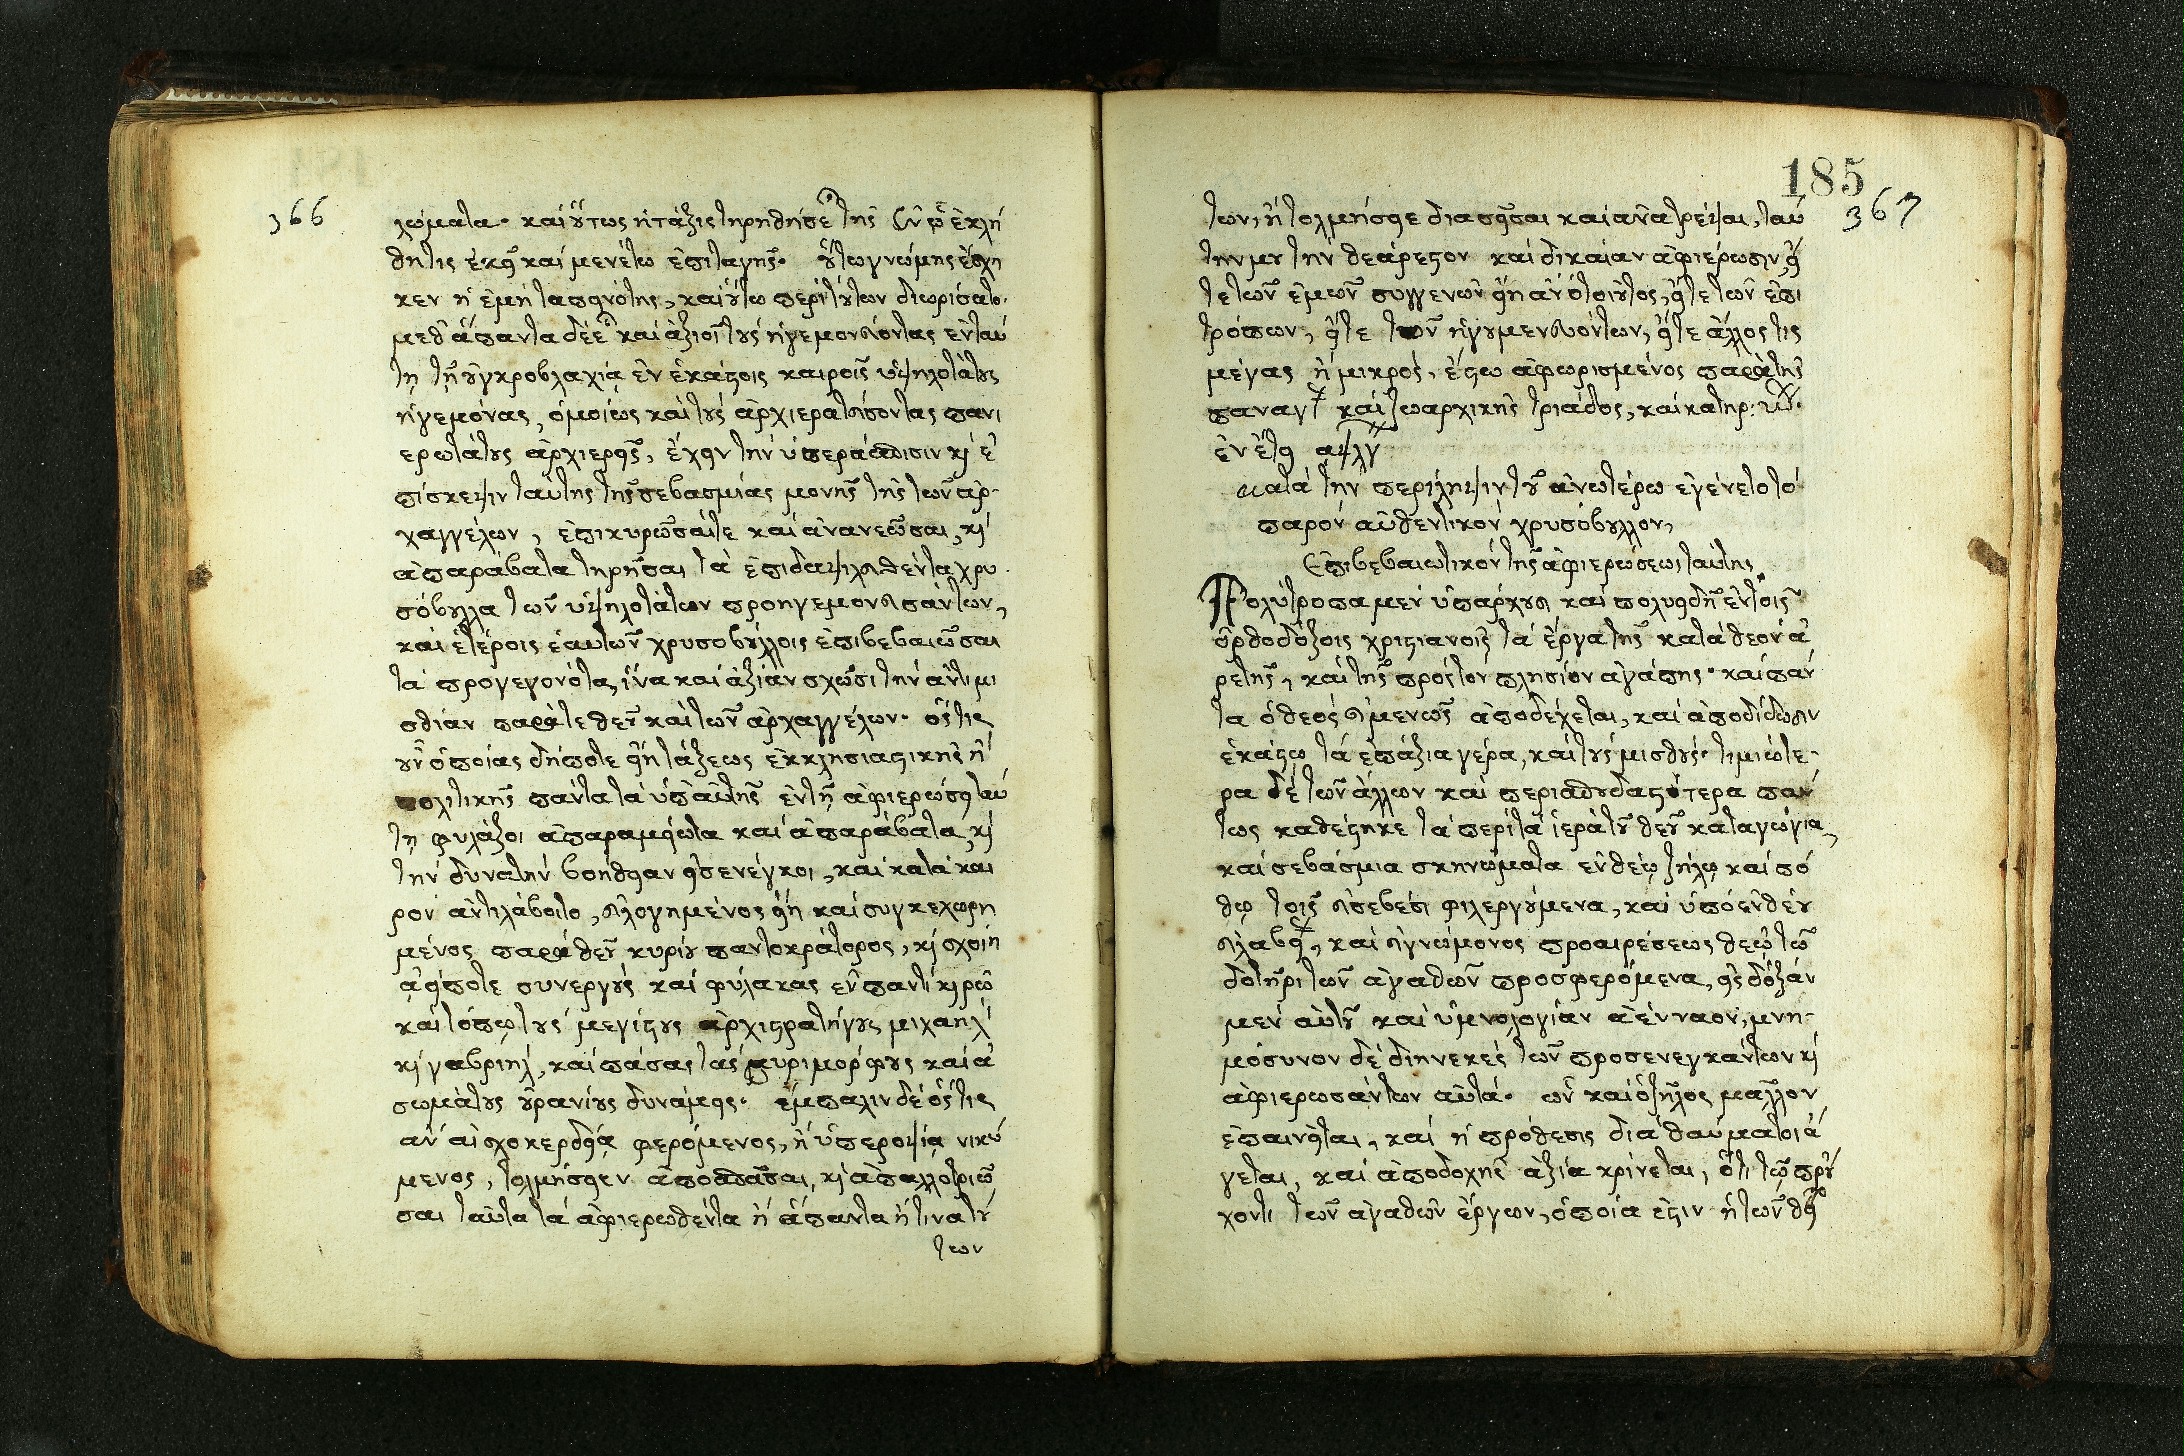 366
λώματα· καὶ οὕτως ἡ τάξις τηρηθήσε τῆς ἐν ᾧ ἐκλή
θη τις ἐκεῖ καὶ μενέτω ἐπιταγῆς· οὕτω γνώμης ἔσχη
κεν ἡ ἐμὴ ταπεινότης, καὶ οὕτω περὶ τούτων διωρισάτο·
μεθ' ἅπαντα δὲ καὶ ἀξιοῖ τοὺς ἡγεμονεύοντας ἐν ταύ
τῃ τῇ οὐγκροβλαχίᾳ ἐν ἑκάστοις καιροῖς ὑψηλοτάτους
ἡγεμόνας, ὁμοίως καὶ τοὺς ἀρχιερατεύοντας πανι
ερωτάτους ἀρχιερεῖς, ἔχειν τὴν ὑπεράσπισιν κὶ ἐ
πίσκεψιν ταύτης τῆς σεβασμίας μονῆς τῆς τῶν ἀρ
χαγγέλων, ἐπικυρῶσαί τε καὶ ἀνανεῶσαι, κὶ
ἀπαράβατα τηρῆσαι τὰ ἐπιδαψιλευθέντα χρυ
σόβουλλα τῶν ὑψηλοτάτων προηγεμονευσάντων,
καὶ ἑτέροις ἑαυτῶν χρυσοβούλλοις ἐπιβεβαιῶσαι
τὰ προγεγονότα, ἵνα καὶ ἀξίαν σχῶσι τὴν ἀντιμι
σθίαν παρά τε θεοῦ καὶ τῶν ἀρχαγγέλων· ὅστις
οὖν ὁποίας δήποτε εἴη τάξεως ἐκκλησιαστικῆς ἢ
πολιτικῆς πάντα τὰ ὑπ' αὐτῆς ἐν τῇ ἀφιερώσει ταύ
τῃ φυλάξοι ἀπαραμείωτα καὶ ἀπαράβατα, κὶ
τὴν δυνατὴν βοήθειαν εἰσενέγκοι, καὶ κατὰ και
ρὸν ἀντιλάβοιτο, εὐλογημένος εἴη καὶ συγκεχωρη
μένος παρὰ θεοῦ κυρίου παντοκράτορος, κὶ σχοίη
ἀείποτε συνεργοὺς καὶ φύλακας ἐν παντὶ κιρῶ
καὶ τόπῳ τοὺς μεγίστους ἀρχιστρατήγους μιχαὴλ
κὶ γαβριὴλ, καὶ πάσας τὰς πυριμόρφους καὶ ἀ
σωμάτους οὐρανίους δυνάμεις· ἔμπαλιν δὲ ὅστις
ἂν αἰσχοκερδείᾳ φερόμενος, ἢ ὑπεροψίᾳ νικώ
μενος, τολμήσειεν ἀποσπᾶσαι, κὶ ἀπαλλοτριῶ
σαι ταῦτα τὰ ἀφιερωθέντα ἢ ἅπαντα ἢ τινα τού
των
185
367
των, ἢ τολμήσειε διασεῖσαι καὶ ἀνατρέψαι, ταύ
την μου τὴν θεάρεστον καὶ δικαίαν ἀφιέρωσιν, εἴ
τε τῶν ἐμῶν συγγενῶν εἴη ἂν ὁ τοιοῦτος, εἴτε τῶν ἐπι
τρόπων, εἴτε τῶν ἡγουμενευόντων, εἴτε ἄλλος τις
μέγας ἢ μικρός, ἔστω ἀφωρισμένος παρὰ τῆς
παναγ καὶ ζωαρχικῆς τριάδος, καὶ κατηρ:
ἐν ἔτει αψλγ
Κατὰ τὴν περίληψιν τοῦ ἀνωτέρω ἐγένετο τὸ
παρὸν αὐθεντικὸν χρυσόβουλλον,
Ἐπιβεβαιωτικὸν τῆς ἀφιερώσεως ταύτης
Πολύτροπα μὲν ὑπάρχουσι καὶ πολυειδῆ ἐν τοῖς
ὀρθοδόξοις χριστιανοῖς τὰ ἔργα τῆς κατὰ θεὸν ἀ
ρετῆς, καὶ τῆς πρὸς τὸν πλησίον ἀγάπης· καὶ πάν
τα ὁ θεὸς εὐμενῶς ἀποδέχεται, καὶ ἀποδίδωσιν
ἑκάστῳ τὰ ἐπάξια γέρα, καὶ τοὺς μισθούς· τιμιώτε
ρα δὲ τῶν ἄλλων καὶ περισπουδαστότερα πάν
τως καθέστηκε τὰ περὶ τὰ ἱερὰ τοῦ θεοῦ καταγώγια,
καὶ σεβάσμια σκηνώματα ἐνθέῳ ζήλῳ καὶ πό
θῳ τοῖς εὐσεβέσι φιλεργούμενα, καὶ ὑπὸ ἐνθέου
εὐλαβεί, καὶ εὐγνώμονος προαιρέσεως θεῷ τῷ
δοτῆρι τῶν ἀγαθῶν προσφερόμενα, εἰς δόξαν
μὲν αὐτοῦ καὶ ὑμνολογίαν ἀένναον, μνη
μόσυνον δὲ διηνεκὲς τῶν προσενεγκάντων κὶ
ἀφιερωσάντων αὐτά· ὧν καὶ ὁ ζῆλος μᾶλλον
ἐπαινεῖται, καὶ ἡ πρόθεσις διὰ θαύματος ἄ
γεται, καὶ ἀποδοχῆς ἀξία κρίνεται, ὅτι τῷ πρού
χοντι τῶν ἀγαθῶν ἔργων, ὁποία ἐστιν ἡ τῶν θεί